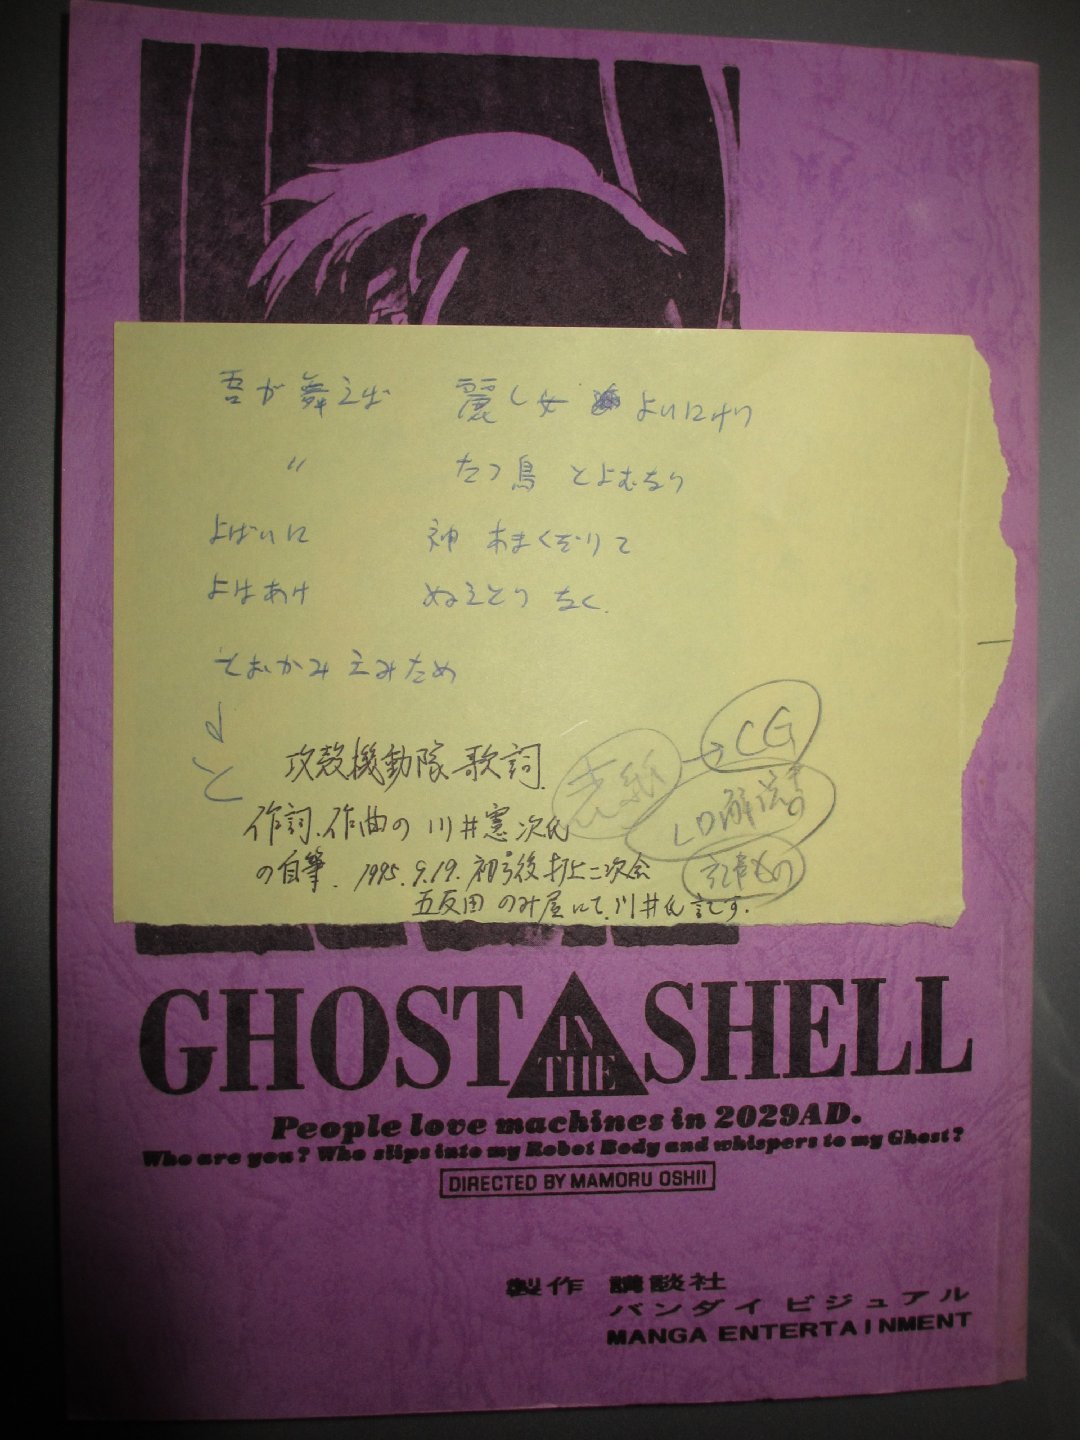 吾が舞えば 麗し女 よいにけり
〃 たつ鳥 とよむなり
よばいに 神 あまくだりて
よはあけ ぬえとり なく.
とおかみ エみため
と
攻殻機動隊 歌詞.
作詞、作曲の 川井憲次氏
の自筆. 1995.9.19. 初号後打上二次会
五反田 のみ屋にて、川井氏 記しす.
表紙
CG
LD解説
GHOST IN THE SHELL
People love machines in 2029AD.
Who are you? Who slips into my Robot Body and whispers to my Ghost?
DIRECTED BY MAMORU OSHII
製作 講談社
バンダイ ビジュアル
MANGA ENTERTAINMENT